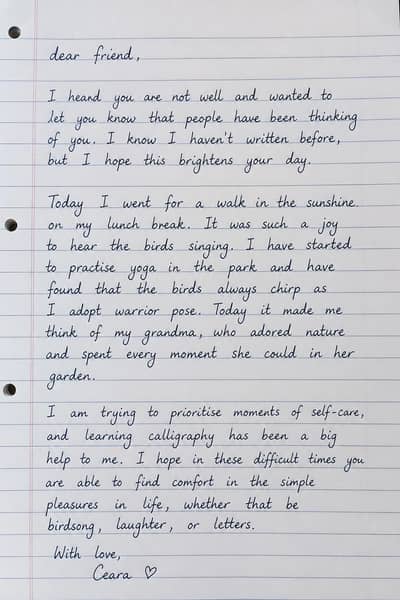 dear friend,
I heard you are not well and wanted to
let you know that people have been thinking
of you. I know I haven't written before,
but I hope this brightens your day.
Today I went for a walk in the sunshine
on my lunch break. It was such a joy
to hear the birds singing. I have started
to practise yoga in the park and have
found that the birds always chirp as
I adopt warrior pose. Today it made me
think of my grandma, who adored nature
and spent every moment she could in her
garden.
I am trying to prioritise moments of self-care,
and learning calligraphy has been a big
help to me. I hope in these difficult times you
are able to find comfort in the simple
pleasures in life, whether that be
birdsong, laughter, or letters.
With love,
Ceara ♡